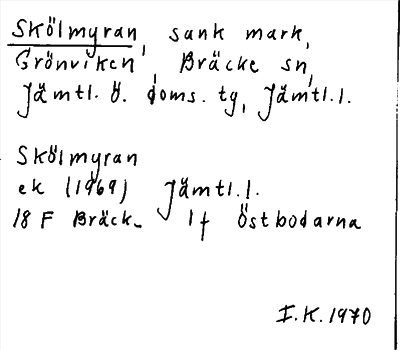 Skölmyran, sank mark,
Grönviken, Bräcke sn,
Jämtl. Ö. doms. tg, Jämtl. l.
Skölmyran
ek (1969) Jämtl. l.
18 F Bräck- 1 f Östbodarna
I.K. 1970